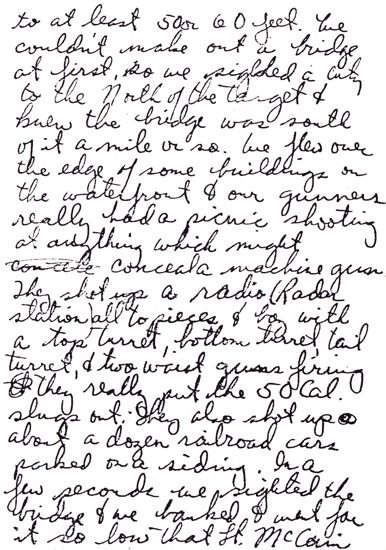 to at least 50 or 60 feet. We
couldn't make out a bridge
at first, so we sighted a city
to the North of the target &
knew the bridge was south
of it a mile or so. We flew over
the edge of some buildings on
the waterfront & our gunners
really had a picnic shooting
at anything which might
conceal a machine gun.
They shot up a radio (Radar
station all to pieces & boy with
a top turret, bottom turret, tail
turret, & two waist guns firing
they really put the 50 Cal.
slugs out. They also shot up
about a dozen railroad cars
parked on a siding. In a
few seconds we sighted the
bridge & we banked & went for
it so low that Lt. McCain